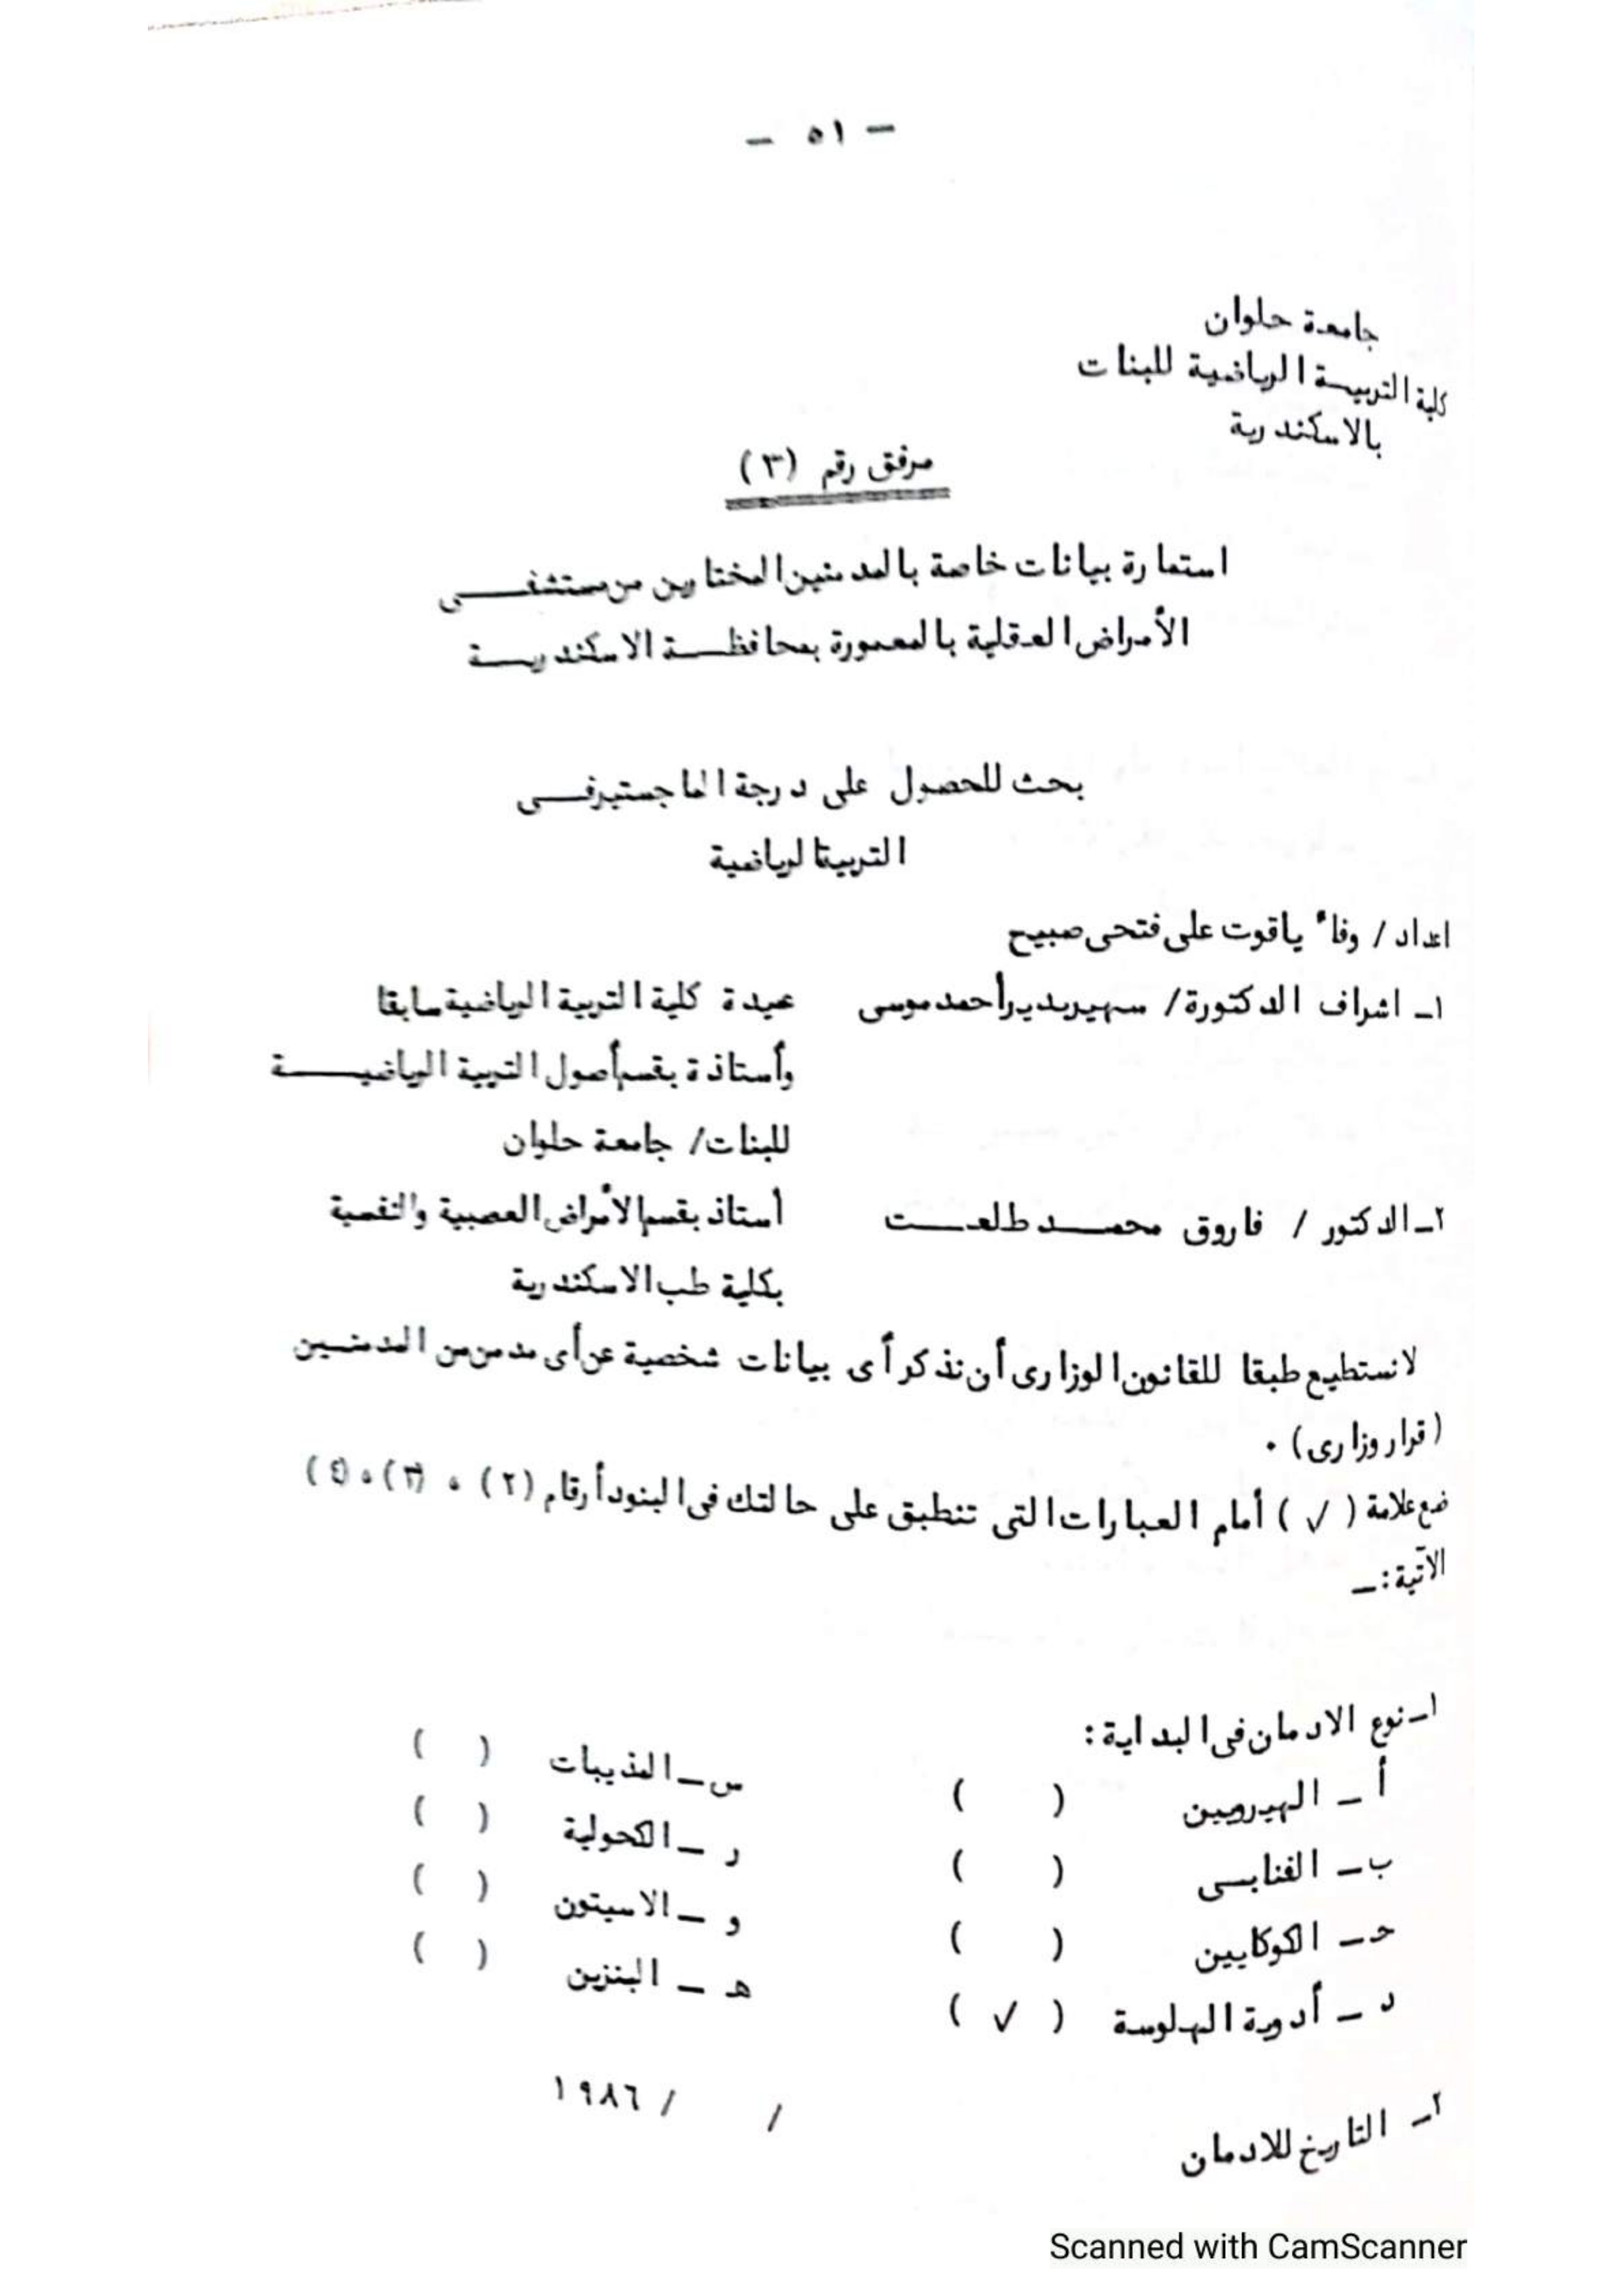 - ٥١ -
جامعة حلوان
كلية التربيسة الرياضية للبنات
بالاسكندرية
مرفق رقم (٣)
استمارة بيانات خاصة بالمدمنين المختارين من مستشفـــــى
الأمراض العقلية بالمعمورة بمحافظــــة الاسكندريــــة
بحث للحصول على درجة الماجستير فــــى
التربية الرياضية
اعداد / وفاء ياقوت على فتحى صبيح
١- اشراف الدكتورة / سهير بدير أحمد موسى عميدة كلية التربية الرياضية سابقا
وأستاذة بقسم أصول التربية الرياضيـــــة
للبنات / جامعة حلوان
٢- الدكتور / فاروق محمــــد طلعــــت أستاذ بقسم الأمراض العصبية والنفسية
بكلية طب الاسكندرية
لا نستطيع طبقا للقانون الوزارى أن نذكر أى بيانات شخصية عن أى مدمن من المدمنــين
(قرار وزارى) .
ضع علامة ( √ ) أمام العبارات التى تنطبق على حالتك فى البنود أرقام (٢) ، (٣) ، (٤)
الآتية : -
١- نوع الادمان فى البداية :
أ - الهيرويين ( ) س - المذيبات ( )
ب - القنابسى ( ) ر - الكحولية ( )
حـ - الكوكايين ( ) و - الاسيتون ( )
د - أدوية الهلوسة ( √ ) هـ - البنزين ( )
٢- التاريخ للادمان / / ١٩٨٦
Scanned with CamScanner